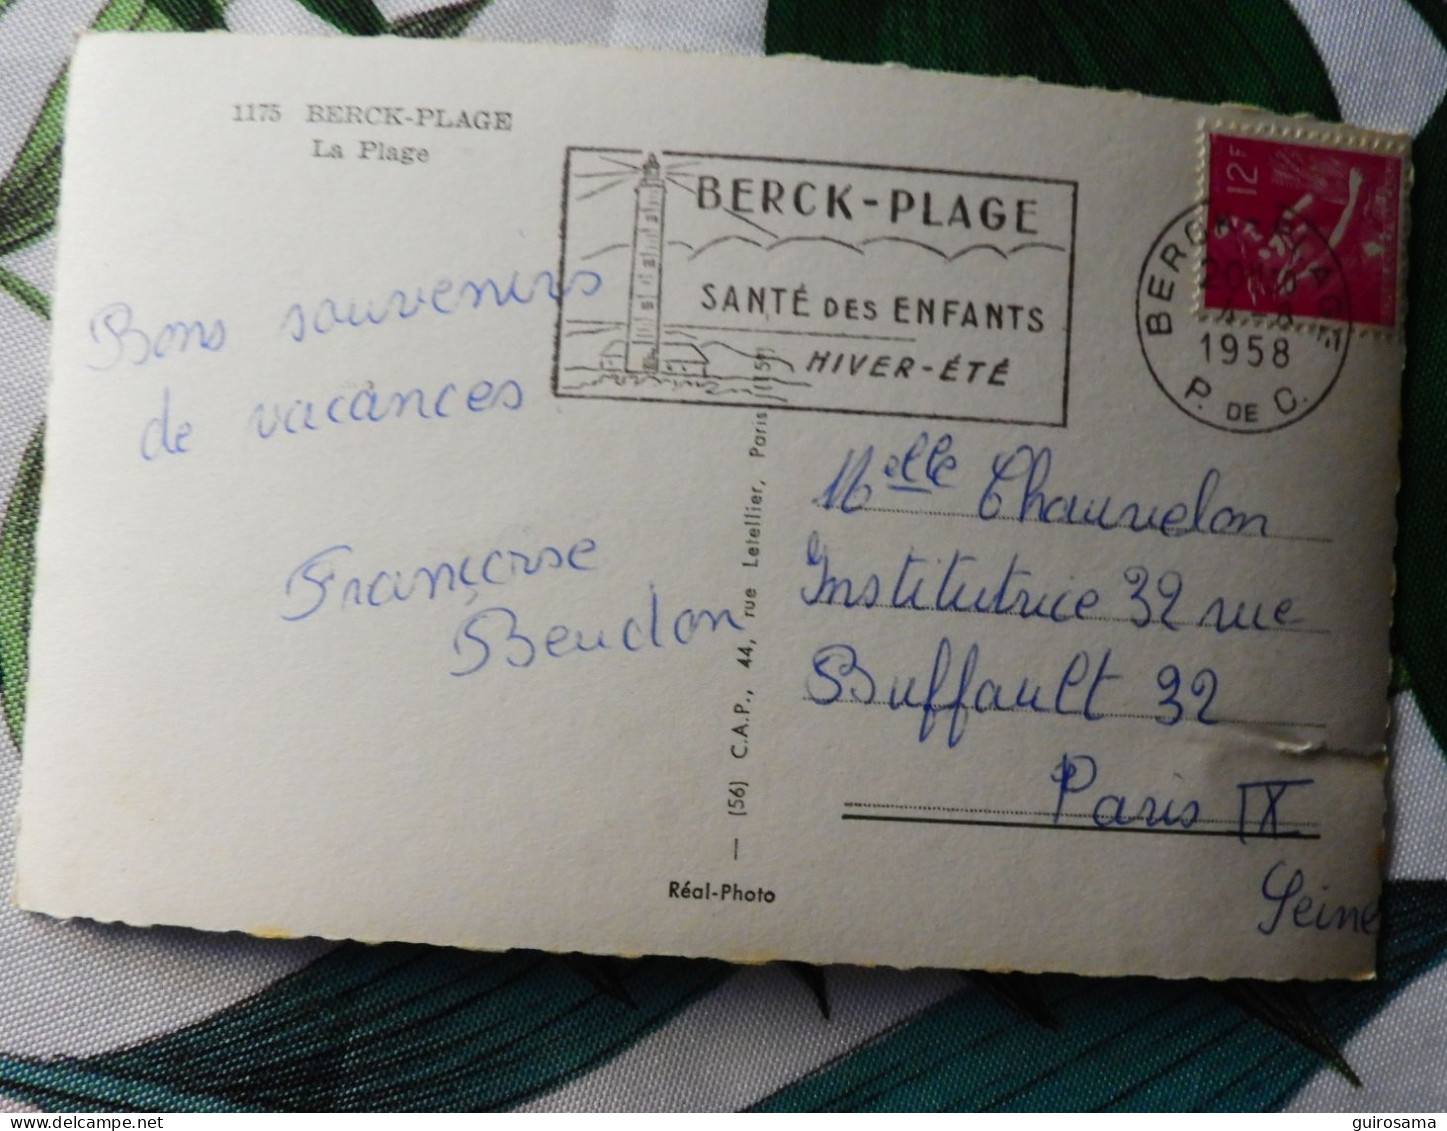 1175 BERCK-PLAGE
La Plage
BERCK-PLAGE
SANTÉ DES ENFANTS
HIVER-ÉTÉ
12F
BERCK-PLAGE
1958
P. DE C.
Bons souvenirs
de vacances
Françoise
Beudon
— (56) C.A.P., 44, rue Letellier, Paris (15e)
Réal-Photo
Melle Chauvelon
Institutrice 32 rue
Buffault 32
Paris IX
Seine
guirosama